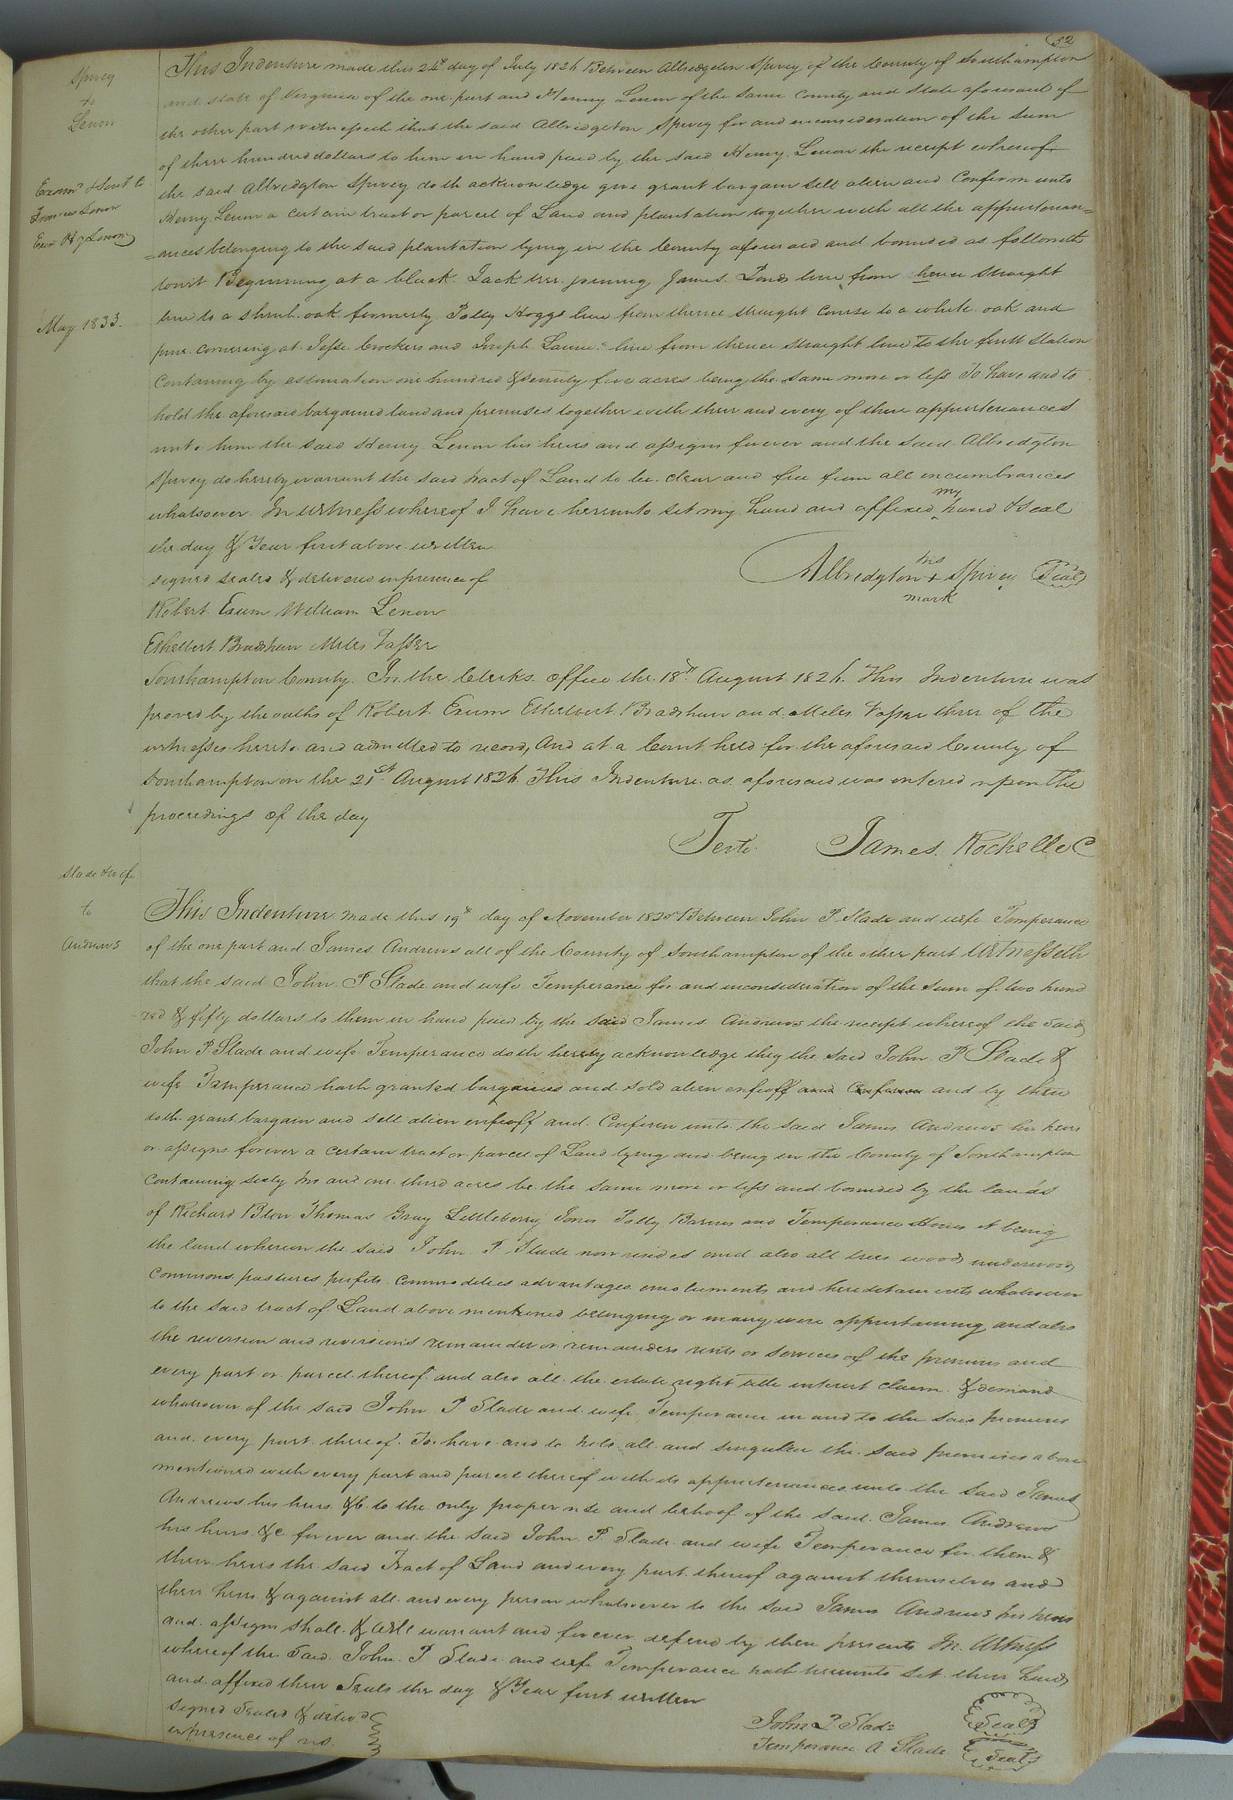 52
Spivey
to
Lenow
Examd & Sent to
Lenow
Exr H y Lenow
May 1833.
This Indenture made this 24th day of July 1826 Between Albredgton Spivey of the County of Southampton
and State of Virginia of the one part and Henry Lenow of the Same County and State aforesaid of
the other part witnesseth that the said Albridgton Spivey for and inconsideration of the Sum
of three hundred dollars to him in hand paid by the said Henry Lenow the receipt whereof
the said Albredgton Spivey doth acknowledge give grant bargain Sell alien and Confirm unto
Henry Lenow a certain tract or parcel of Land and plantation together with all the appurtenan=
=ances belonging to the said plantation lying in the County aforesaid and bounded as followeth
towit Beginning at a black Jack tree joining James Ponds line from hence Straight
line to a shrub oak formerly Polly Hoggs line from thence straight course to a white oak and
pine cornering at Jesse Crockers and Joseph line from thence Straight line to the first Station
Containing by estimation one hundred & seventy five acres being the same more or less To have and to
hold the aforesaid bargained land and premises together with there and every of there appurtenances
unto him the said Henry Lenow his heirs and assigns forever and the said Albredgton
Spivey do hereby warrant the said tract of Land to be clear and free from all incumbrances
whatsoever In witness whereof I have hereunto set my hand and affixed my hand & Seal
the day & Year first above written
signed sealed & delivered in presence of
Albredgton his + mark Spivey Seal
Robert Exum William Lenow
Ethelbert Bradshaw Miles Vasser
Southampton County. In the Clerks Office the 18th August 1826. This Indenture was
proved by the oaths of Robert Exum Ethelbert Bradshaw and Miles Vasser three of the
witnesses hereto and admitted to record, And at a Court held for the aforesaid County of
Southampton on the 21st August 1826 This Indenture as aforesaid was entered upon the
proceedings of the day
Teste James Rochelle C
Slade & wife
to
Andrews
This Indenture made this 19th day of November 1825 Between John P Slade and wife Temperance
of the one part and James Andrews all of the County of Southampton of the other part Witnesseth
that the said John P Slade and wife Temperance for and inconsideration of the sum of two hund
red & fifty dollars to them in hand paid by the said James Andrews the receipt whereof the said
John P Slade and wife Temperance doth hereby acknowledge they the said John P Slade &
wife Temperance hath granted bargained and sold alien enfeoff and Confirm and by these
doth grant bargain and sell alien enfeoff and Confirm unto the said James Andrews his heirs
or assigns forever a certain tract or parcel of Land lying and being in the County of Southampton
Containing sixty and one third acres be the same more or less and bounded by the lands
of Richard Blow Thomas Gray Littleberry Jones Polly Barnes and Temperance it being
the land whereon the said John P Slade now resides and also all trees woods underwoods
commons pastures profits commodities advantages emoluments and hereditaments whatsoever
to the said tract of Land above mentioned belonging or in any wise appurtaining and also
the reversion and reversions remainder or remainders rents or services of the premises and
every part or parcel thereof and also all the estate right title interest claim & demand
whatsoever of the said John P Slade and wife Temperance in and to the said premises
and every part thereof. To have and to hold all and singular the said premises above
mentioned with every part and parcel thereof with its appurtenances unto the said James
Andrews his heirs &c to the only proper use and behoof of the said James Andrews
his heirs &c forever and the said John P Slade and wife Temperance for them &
their heirs the said Tract of Land and every part thereof against themselves and
their heirs & against all and every person whatsoever to the said James Andrews his heirs
and assigns shall & will warrant and forever defend by these presents In Witness
whereof the said John P Slade and wife Temperance hath hereunto set their hands
and affixed their Seals the day & Year first written
signed Sealed & delivd
in presence of us.
John P Slade Seal
Temperance A Slade Seal